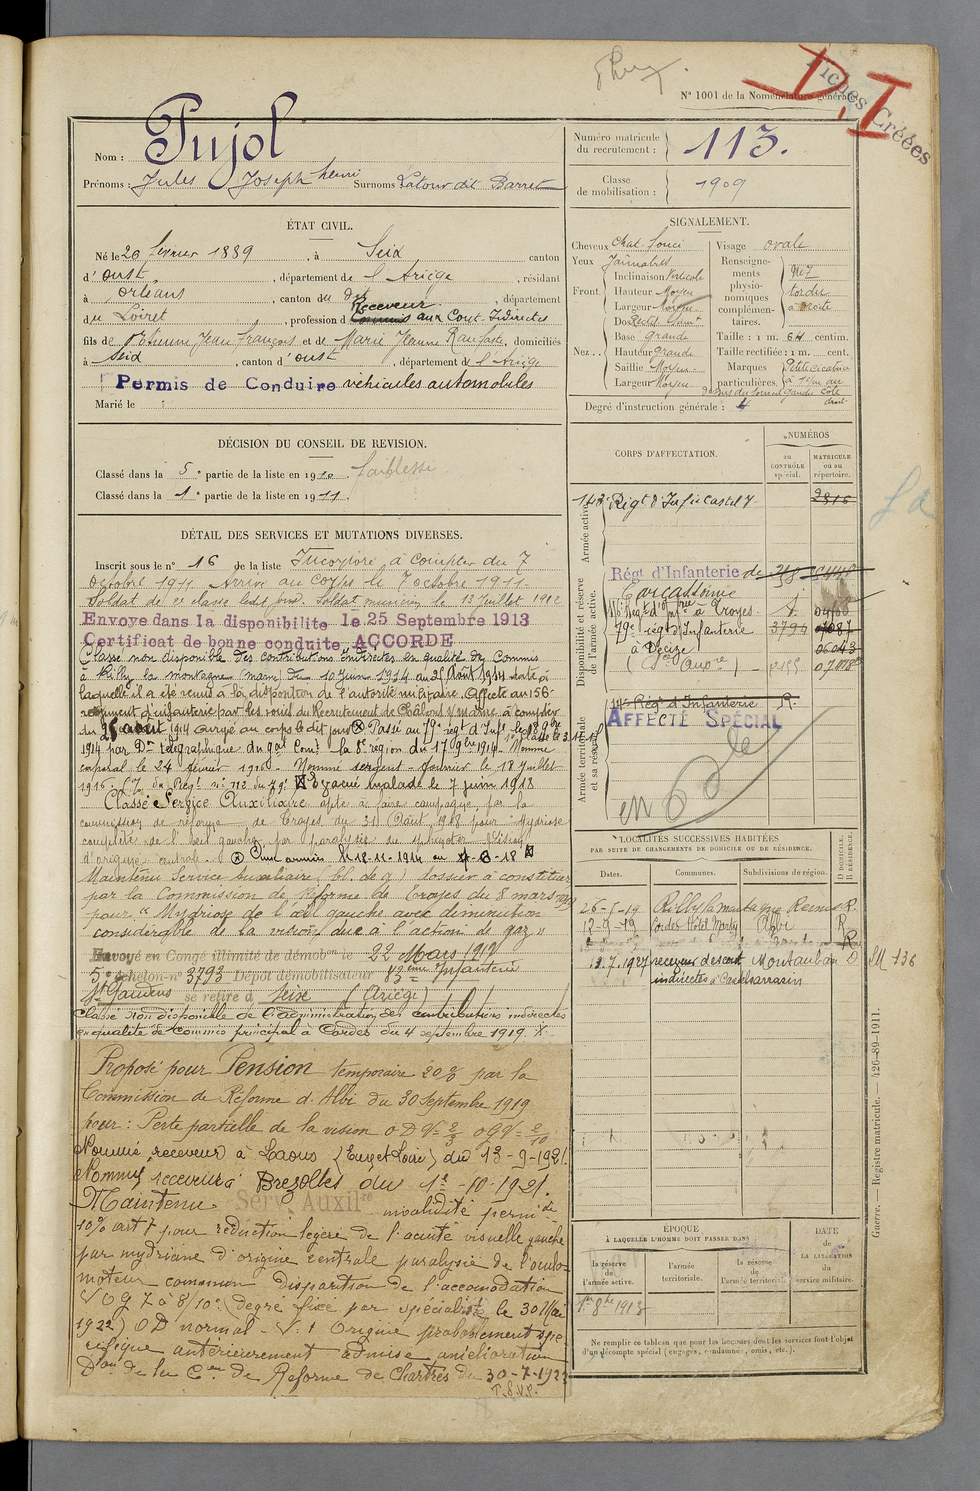 N° 1001 de la Nomenclature générale.
D.I
Fiches Créées
Nom : Pujol
Prénoms : Jules Joseph henri Surnoms Latour dit Barret
Numéro matricule du recrutement : 113.
Classe de mobilisation : 1909
ÉTAT CIVIL.
Né le 20 février 1889, à Seix canton
d'oust, département de l'Ariège, résidant
à orléans, canton du dit, département
du Loiret, profession de Receveur Commis aux Cont. Indirectes
fils de Etienne Jean François et de Marie Jeanne Raufaste, domiciliés
à Seix, canton d'oust, département de l'Ariège
Permis de Conduire véhicules automobiles
Marié le
SIGNALEMENT.
Cheveux Chat. foncé
Yeux Jaunâtres
Front. Inclinaison Verticale
Hauteur Moyen
Largeur Moyen
Nez... Dos Rectil.
Base grande
Hauteur grande
Saillie Moyen
Largeur Moyen
Visage ovale
Renseignements physionomiques complémentaires. Nez tordu à droite
Taille : 1 m. 64 centim.
Taille rectifiée : 1 m. cent.
Marques particulières. Petite cicatrice à 1 cm au dessus du sourcil gauche côté droit
Degré d'instruction générale : 4
DÉCISION DU CONSEIL DE REVISION.
Classé dans la 5e partie de la liste en 1910. Faiblesse
Classé dans la 1e partie de la liste en 1911.
DÉTAIL DES SERVICES ET MUTATIONS DIVERSES.
Inscrit sous le n° 16 de la liste Incorporé à compter du 7
octobre 1911 Arrivé au corps le 7 octobre 1911
Soldat de 2e classe ledit jour. Soldat musicien le 13 Juillet 1912
Envoye dans la disponibilite le 25 Septembre 1913
Certificat de bonne conduite ACCORDE
Classé non disponible des contributions Indirectes en qualité de Commis
à Rilly la montagne (marne) du 10 Juin 1914 au 25 Août 1914 date à
laquelle il a été remis à la disposition de l'autorité militaire. Affecté au 156
régiment d'infanterie par les soins du Recrutement de Châlons s/ marne à compter
du 25 août 1914 arrivé au corps le dit jour Passé au 79e régt d'Infie le 18 9bre
1914 par Don télégraphique du Gal Comt la 8e région du 17 9bre 1914. Nommé
caporal le 24 février 1916. Nommé sergent-fourrier le 18 Juillet
1916. du Régt n° 112 du 79e Evacué malade le 7 juin 1918
Classé Service Auxiliaire apte à faire campagne par la
commission de réforme de Troyes du 31 Août 1918 pour mydriase
complète de l'œil gauche par paralysie du sphincter Vision
d'origine centrale. Aux armées du 18-11-1914 au 7-6-18
Maintenu Service Auxiliaire, bl. de g) dossier à constituer
par la Commission de Réforme de Troyes du 8 mars 1919
pour " Mydriase de l'œil gauche avec diminution
considérable de la vision due à l'action de gaz "
Envoyé en Congé illimité de démobon le 22 Mars 1919
5e échelon n° 3793 Dépôt démobilisateur 83eme Infanterie
St Gaudens se retire à Seix (Ariège)
Classé non disponible de l'administration des contributions indirectes
en qualité de commis principal à Cordes du 4 septembre 1919. X
Proposé pour Pension temporaire 20% par la
Commission de Réforme d'Albi du 30 Septembre 1919
pour : Perte partielle de la vision ODV= 2/3 OGV= 2/10
Nommé receveur à Laons (Eure et Loire) du 13-9-1921.
Nommé receveur à Brezolles du 1er-10-1921.
Maintenu Serv. Auxilre invalidité permte
10% art 7 pour réduction légère de l'acuité visuelle gauche
par mydriase d'origine centrale paralysie de l'oculo
moteur commun disparition de l'accomodation
VOG 7 à 8/10e (degré fixé par spécialiste le 30 Mai
1922) OD normal - V: 1 Origine probablement spé
cifique antérieurement admise amélioration
Don de la Con de Réforme de Chartres du 30-7-1922
T.S.V.P.
CORPS D'AFFECTATION.
NUMÉROS
au CONTRÔLE spécial.
MATRICULE ou au répertoire.
Armée active.
143e Régt d'Infie Castely 2816
Disponibilité et réserve de l'armée active.
Régt d'Infanterie de
Carcassonne
156 Régt d'Infie à Troyes.
79e régt d'Infanterie 3796
à Decize
Armée territoriale et sa réserve.
Régt d'Infanterie R.
AFFECTÉ SPÉCIAL
LOCALITÉS SUCCESSIVES HABITÉES
PAR SUITE DE CHANGEMENTS DE DOMICILE OU DE RÉSIDENCE.
Dates. Communes. Subdivisions de région. D DOMICILE. R RÉSIDENCE.
26-5-19 Rilly la montagne Reims R.
12-9-19 Cordes Hôtel Marty Albi R
19.7.1927 receveur des cont. indirectes à Castelsarrasin Montauban D
M 136
ÉPOQUE
À LAQUELLE L'HOMME DOIT PASSER DANS
la réserve de l'armée active.
l'armée territoriale.
la réserve de l'armée territoriale.
DATE de LA LIBÉRATION du service militaire.
1er 8bre 1913
Ne remplir ce tableau que pour les hommes dont les services font l'objet
d'un décompte spécial (engagés, condamnés, omis, etc.).
Guerre. — Registre matricule. — 426-89-1911.